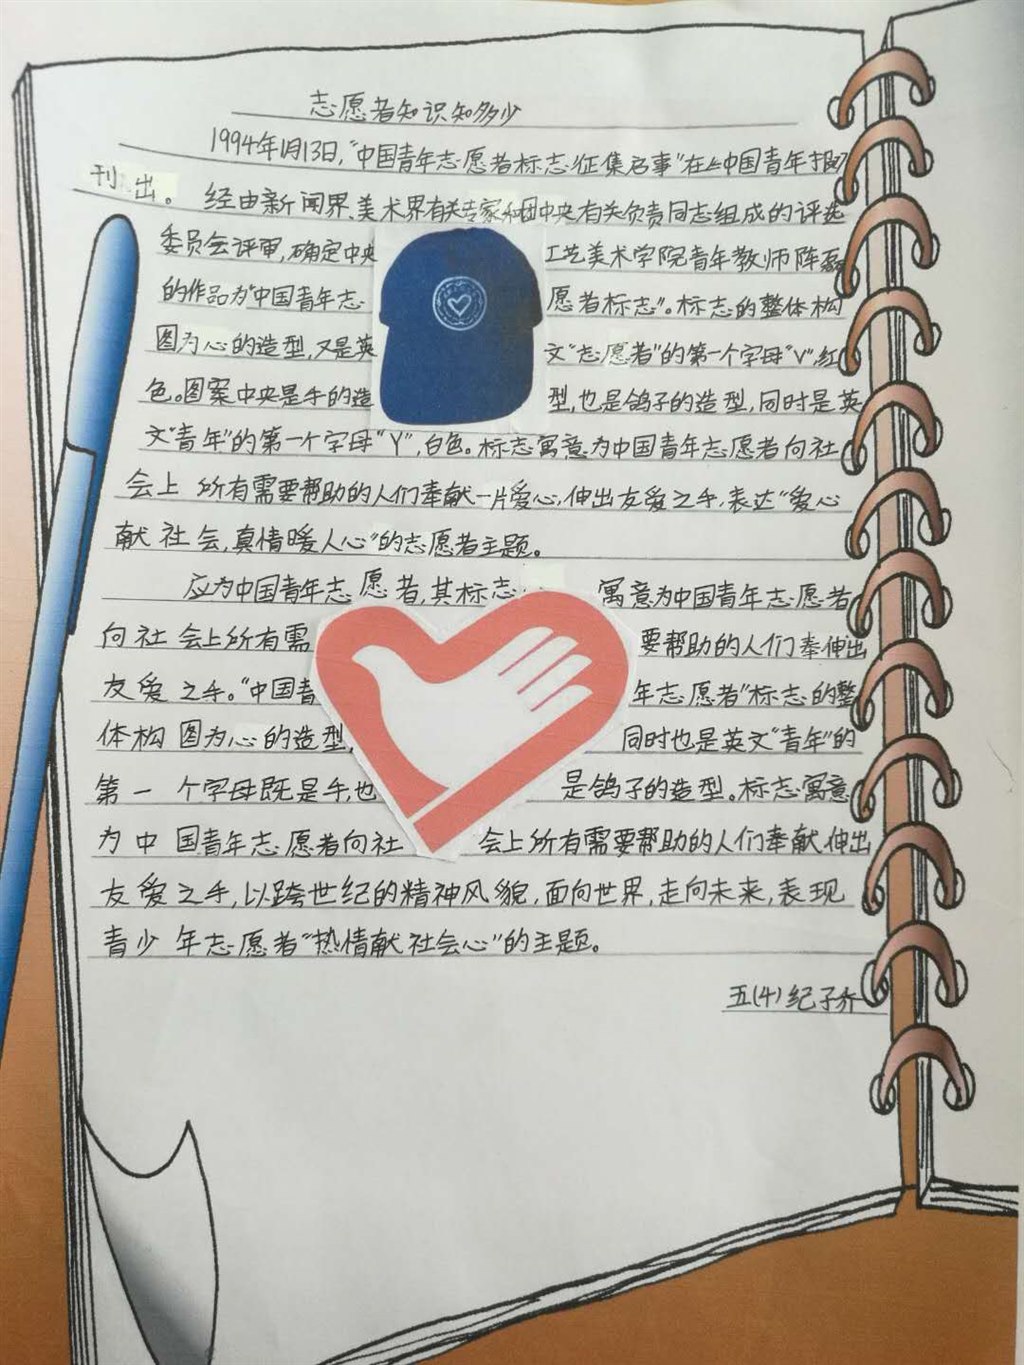 志愿者知识知多少
1994年1月13日,“中国青年志愿者标志征集启事”在《中国青年报》
刊出。 经由新闻界、美术界有关专家和团中央有关负责同志组成的评选
委员会评审,确定中央工艺美术学院青年教师陈磊
的作品为“中国青年志愿者标志”。标志的整体构
图为心的造型,又是英文“志愿者”的第一个字母“V”,红
色。图案中央是手的造型,也是鸽子的造型,同时是英
文“青年”的第一个字母“Y”,白色。标志寓意为中国青年志愿者向社
会上所有需要帮助的人们奉献一片爱心,伸出友爱之手,表达“爱心
献社会,真情暖人心”的志愿者主题。
应为中国青年志愿者,其标志寓意为中国青年志愿者
向社会上所有需要帮助的人们奉伸出
友爱之手。“中国青年志愿者”标志的整
体构图为心的造型,同时也是英文“青年”的
第一个字母既是手,也是鸽子的造型。标志寓意
为中国青年志愿者向社会上所有需要帮助的人们奉献,伸出
友爱之手,以跨世纪的精神风貌,面向世界,走向未来,表现
青少年志愿者“热情献社会心”的主题。
五(4)纪子乔